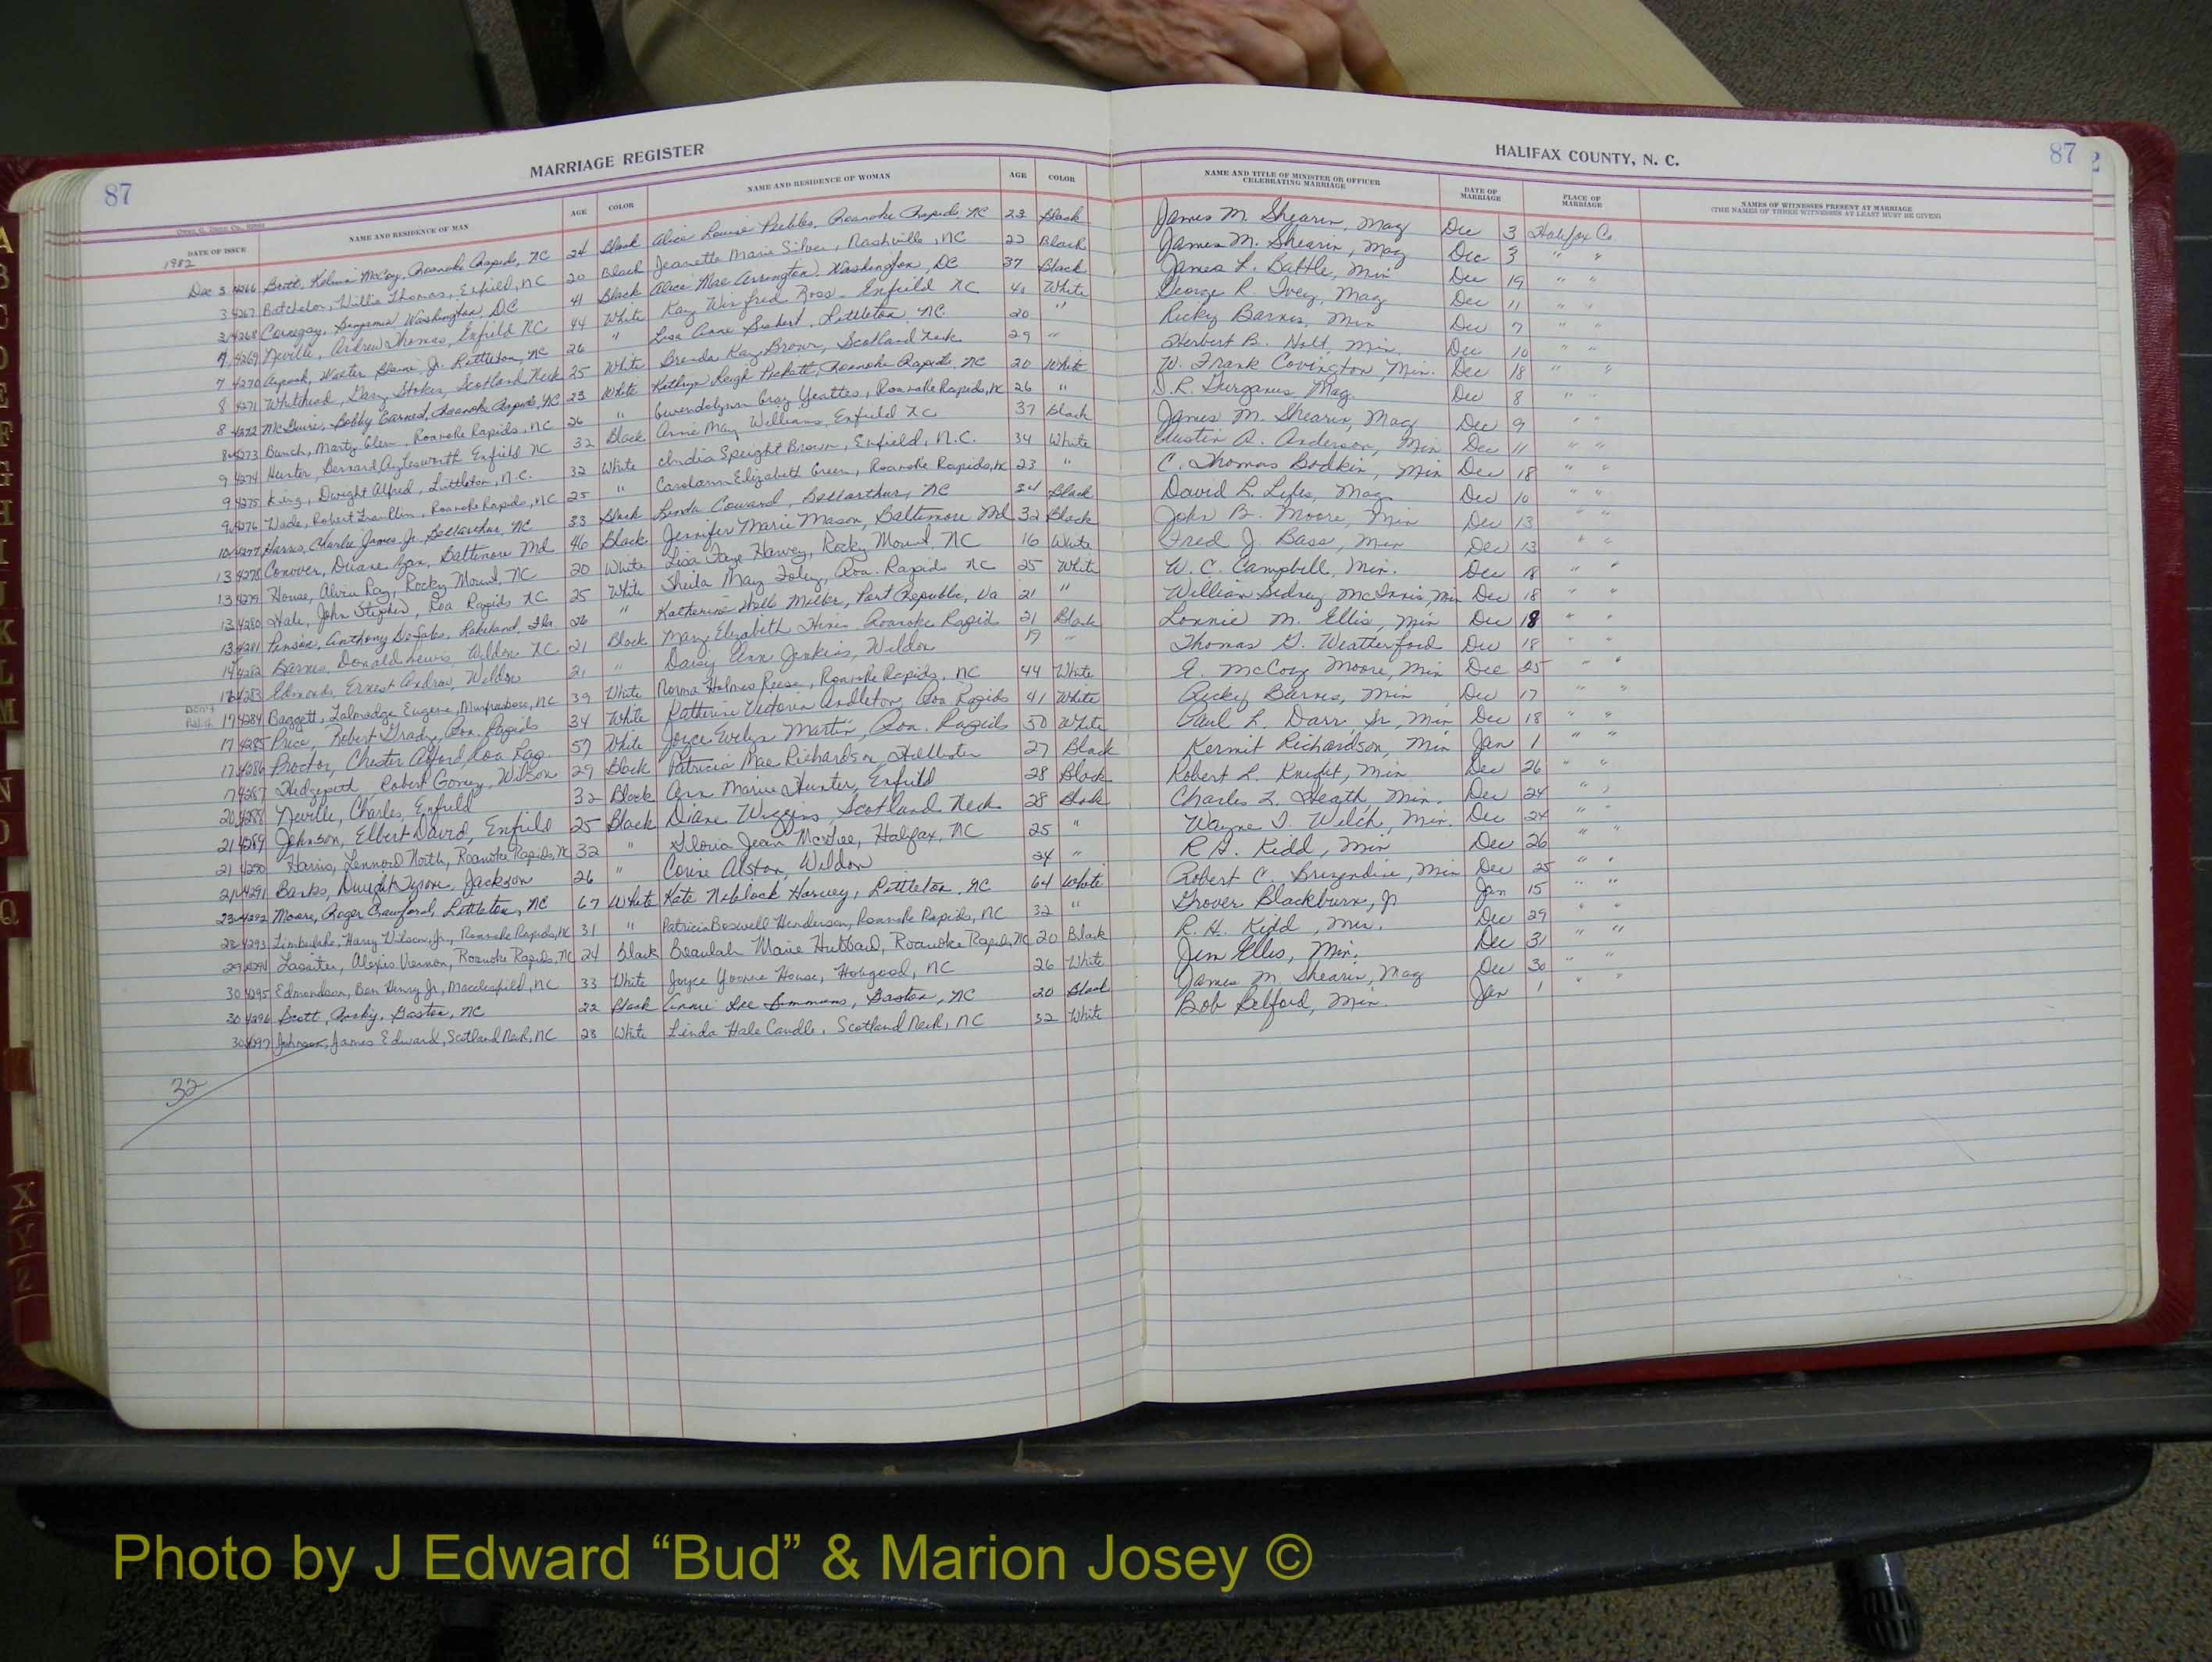 MARRIAGE REGISTER
HALIFAX COUNTY, N. C.
87
87
DATE OF ISSUE NAME AND RESIDENCE OF MAN AGE COLOR NAME AND RESIDENCE OF WOMAN AGE COLOR NAME AND TITLE OF MINISTER OR OFFICER CELEBRATING MARRIAGE DATE OF MARRIAGE PLACE OF MARRIAGE NAMES OF WITNESSES PRESENT AT MARRIAGE (THE NAMES OF THREE WITNESSES AT LEAST MUST BE GIVEN)
1982
Dec 3 4266 McCoy, Roanoke Rapids, NC 24 Black Alice Louise Peebles, Roanoke Rapids, NC 23 Black James M. Shearin, Mag Dec 3 Halifax Co.
3 4267 Batchelor, Willie Thomas, Enfield, NC 20 Black Jeanette Marie Silver, Nashville, NC 22 Black James M. Shearin, Mag Dec 3 " "
3 4268 Cornegay, Benjamin Washington, DC 41 Black Alice Mae Arrington, Washington, DC 37 Black James L. Battle, Min Dec 19 " "
4269 Neville, Andrew Thomas, Enfield NC 44 White Kay Winfred Ross, Enfield NC White George R. Ivey, Mag Dec 11 " "
7 4270 Walter Jr. Littleton, NC 26 " Lisa Anne Littleton NC 20 " Ricky Barnes, Min Dec 7 " "
8 4271 Whitehead, Gary Stokes, Scotland Neck 25 White Brenda Kay Brown, Scotland Neck 29 " Herbert B. Holt, Min. Dec 10 " "
8 4272 McGuire, Bobby Earnest, Roanoke Rapids, NC 23 White Kathryn Leigh Pickett, Roanoke Rapids, NC 20 White W. Frank Covington, Min. Dec 18 " "
8 4273 Bunch, Marty Glen, Roanoke Rapids, NC 26 " Gwendolynn Gray Yeattes, Roanoke Rapids, NC 26 " D.R. Gurganus, Mag. Dec 8 " "
9 4274 Hunter, Bernard Aylesworth Enfield NC 32 Black Annie May Williams, Enfield NC 37 Black James M. Shearin, Mag Dec 9 "
9 4275 King, Dwight Alfred, Littleton, N.C. 32 White India Speight Brown, Enfield, N.C. 34 White Austin A. Anderson, Min Dec 11 " "
9 4276 Wade, Robert Franklin, Roanoke Rapids, NC 25 " Carolann Elizabeth Green, Roanoke Rapids, NC 23 " C. Thomas Bodkin, Min Dec 18 " "
10 4277 Harris, Charlie James, Jr. Bellarthur NC 33 Black Linda Coward, Bellarthur, NC 34 Black David L. Lyles, Mag. Dec 10 " "
13 4278 Conover, Duane Baltimore Md. 46 Black Jennifer Marie Mason, Baltimore Md 32 Black John B. Moore, Min Dec 13 " "
13 4279 House, Alvin Ray, Rocky Mount, NC 20 White Lisa Faye Harvey, Rocky Mount, NC 16 White Fred J. Bass, Min Dec 13 " "
13 4280 Hale, John Stephen, Roa Rapids NC 25 White Sheila May Foley, Roa. Rapids NC 25 White W. C. Campbell, Min. Dec 18 " "
13 4281 Anthony Lakeland, Fla 26 " Katherine Miller, Port Republic, Va 21 " William Sidney McInnis, Min Dec 18 " "
14 4282 Barnes, Donald Lewis, Weldon NC 21 Black Mary Elizabeth Hines Roanoke Rapids 21 Black Lonnie M. Ellis, Min Dec 18 " "
16 4283 Edmonds, Ernest Andrew, Weldon 21 " Daisy Ann Jenkins, Weldon 19 " Thomas G. Weatherford Dec 18 " "
17 4284 Baggett, Talmadge Eugene, Murfreesboro, NC 39 White Norma Holmes Reese, Roanoke Rapids, NC 44 White E. McCoy Moore, Min Dec 25 " "
17 4285 Price, Robert Grady, Roa. Rapids 34 White Katherine Victoria Andleton, Roa Rapids 41 White Ricky Barnes, Min Dec 17 " "
17 4286 Proctor, Chester Alford, Roa Rap. 57 White Joyce Evelyn Martin, Roa. Rapids 50 White Paul L. Darr, Sr, Min Dec 18 " "
17 4287 Hedgepeth, Robert Gorney, Wilson 29 Black Patricia Mae Richardson, Hollister 27 Black Kermit Richardson, Min Jan 1 " "
20 4288 Neville, Charles, Enfield 32 Black Ann Marie Hunter, Enfield 28 Black Robert L. Knight, Min Dec 26 " "
21 4289 Johnson, Elbert David, Enfield 25 Black Diane Wiggins, Scotland Neck 28 Black Charles L. Heath, Min. Dec 24 " "
21 4290 Harris, Lennord North, Roanoke Rapids, NC 32 " Gloria Jean McGee, Halifax, NC 25 " Wayne I. Welch, Min. Dec 24 " "
21 4291 Banks, Dwight Tyrone, Jackson 26 " Corine Alston, Weldon 24 " R.H. Kidd, Min Dec 26 " "
23 4292 Moore, Roger Crawford, Littleton, NC 67 White Kate Neblock Harvey, Littleton, NC 64 White Robert C. Brizendine, Min Dec 25 " "
28 4293 Timberlake, Harry Wilson, Jr., Roanoke Rapids, NC 31 " Patricia Boswell Henderson, Roanoke Rapids, NC 32 " Grover Blackburn, Jr Jan 15 " "
29 4294 Lassiter, Alexis Vernon, Roanoke Rapids, NC 24 Black Beaulah Marie Hubbard, Roanoke Rapids, NC 20 Black R. H. Kidd, Min. Dec 29 " "
30 4295 Edmondson, Ben Henry, Jr, Macclesfield, NC 33 White Joyce Yvonne House, Hobgood, NC 26 White Jim Ellis, Min. Dec 31 " "
30 4296 Scott, Gaston, NC 22 Black Annie Lee Simmons, Gaston, NC 20 Black James M. Shearin, Mag Dec 30 " "
30 4297 Johnson, James Edward, Scotland Neck, NC 28 White Linda Hale Caudle, Scotland Neck, NC 32 White Bob Belford, Min. Jan 1 "
32
Photo by J Edward “Bud” & Marion Josey ©